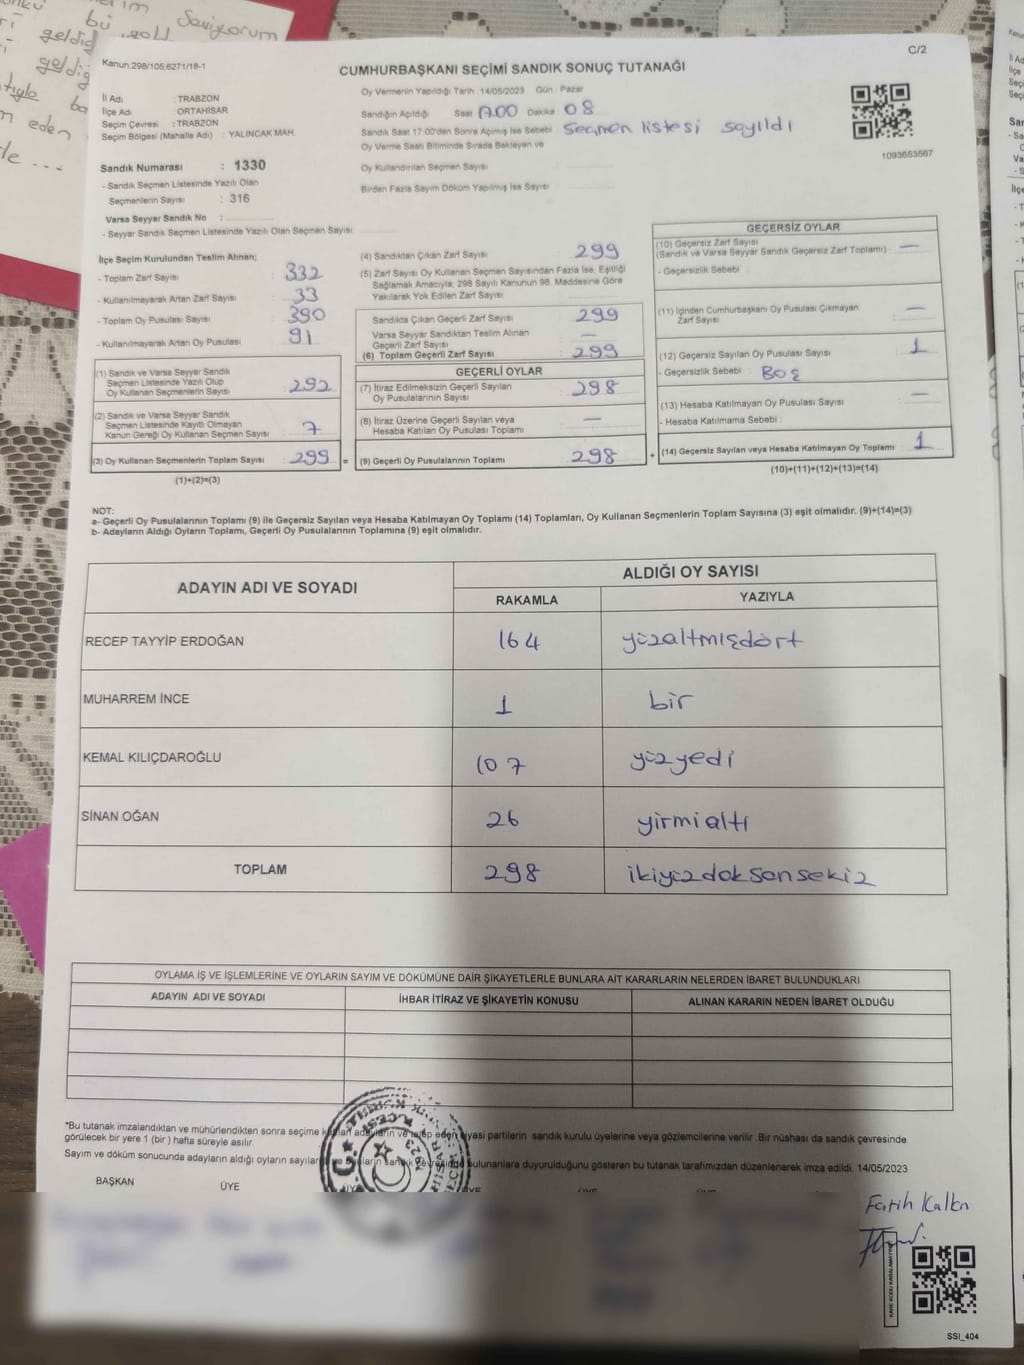 Seviyorum
bu
geldig
geldig
ba
m eden
C/2
Kanun:298/105;6271/18-1
CUMHURBAŞKANI SEÇİMİ SANDIK SONUÇ TUTANAĞI
İl Adı : TRABZON
İlçe Adı : ORTAHİSAR
Seçim Çevresi : TRABZON
Seçim Bölgesi (Mahalle Adı) : YALINCAK MAH.
Oy Vermenin Yapıldığı Tarih : 14/05/2023 Gün : Pazar
Sandığın Açıldığı Saat 17.00 Dakika 08
Sandık Saat 17:00'den Sonra Açılmış İse Sebebi : Seçmen listesi sayıldı
Oy Verme Saati Bitiminde Sırada Bekleyen ve
Oy Kullandırılan Seçmen Sayısı
Birden Fazla Sayım Döküm Yapılmış İse Sayısı
1093653567
Sandık Numarası : 1330
- Sandık Seçmen Listesinde Yazılı Olan
Seçmenlerin Sayısı : 316
Varsa Seyyar Sandık No :
- Seyyar Sandık Seçmen Listesinde Yazılı Olan Seçmen Sayısı
İlçe Seçim Kurulundan Teslim Alınan;
- Toplam Zarf Sayısı : 332
- Kullanılmayarak Artan Zarf Sayısı : 33
- Toplam Oy Pusulası Sayısı : 390
- Kullanılmayarak Artan Oy Pusulası : 91
(1) Sandık ve Varsa Seyyar Sandık
Seçmen Listesinde Yazılı Olup
Oy Kullanan Seçmenlerin Sayısı : 292
(2) Sandık ve Varsa Seyyar Sandık
Seçmen Listesinde Kayıtlı Olmayan
Kanun Gereği Oy Kullanan Seçmen Sayısı : 7
(3) Oy Kullanan Seçmenlerin Toplam Sayısı : 299 =
(1)+(2)=(3)
(4) Sandıktan Çıkan Zarf Sayısı : 299
(5) Zarf Sayısı Oy Kullanan Seçmen Sayısından Fazla İse, Eşitliği
Sağlamak Amacıyla; 298 Sayılı Kanunun 98. Maddesine Göre
Yakılarak Yok Edilen Zarf Sayısı :
Sandıkta Çıkan Geçerli Zarf Sayısı : 299
Varsa Seyyar Sandıktan Teslim Alınan
Geçerli Zarf Sayısı : —
(6) Toplam Geçerli Zarf Sayısı : 299
GEÇERLİ OYLAR
(7) İtiraz Edilmeksizin Geçerli Sayılan
Oy Pusulalarının Sayısı : 298
(8) İtiraz Üzerine Geçerli Sayılan veya
Hesaba Katılan Oy Pusulası Toplamı : —
(9) Geçerli Oy Pusulalarının Toplamı : 298 +
GEÇERSİZ OYLAR
(10) Geçersiz Zarf Sayısı
(Sandık ve Varsa Seyyar Sandık Geçersiz Zarf Toplamı) : —
- Geçersizlik Sebebi :
(11) İçinden Cumhurbaşkanı Oy Pusulası Çıkmayan
Zarf Sayısı : —
(12) Geçersiz Sayılan Oy Pusulası Sayısı : 1
- Geçersizlik Sebebi : BOŞ
(13) Hesaba Katılmayan Oy Pusulası Sayısı : —
- Hesaba Katılmama Sebebi :
(14) Geçersiz Sayılan veya Hesaba Katılmayan Oy Toplamı : 1
(10)+(11)+(12)+(13)=(14)
NOT:
a- Geçerli Oy Pusulalarının Toplamı (9) ile Geçersiz Sayılan veya Hesaba Katılmayan Oy Toplamı (14) Toplamları, Oy Kullanan Seçmenlerin Toplam Sayısına (3) eşit olmalıdır. (9)+(14)=(3)
b- Adayların Aldığı Oyların Toplamı, Geçerli Oy Pusulalarının Toplamına (9) eşit olmalıdır.
ADAYIN ADI VE SOYADI
ALDIĞI OY SAYISI
RAKAMLA YAZIYLA
RECEP TAYYİP ERDOĞAN 164 yüzaltmışdört
MUHARREM İNCE 1 bir
KEMAL KILIÇDAROĞLU 107 yüzyedi
SİNAN OĞAN 26 yirmialtı
TOPLAM 298 ikiyüzdoksansekiz
OYLAMA İŞ VE İŞLEMLERİNE VE OYLARIN SAYIM VE DÖKÜMÜNE DAİR ŞİKAYETLERLE BUNLARA AİT KARARLARIN NELERDEN İBARET BULUNDUKLARI
ADAYIN ADI VE SOYADI İHBAR İTİRAZ VE ŞİKAYETİN KONUSU ALINAN KARARIN NEDEN İBARET OLDUĞU
*Bu tutanak imzalandıktan ve mühürlendikten sonra seçime adayların ve talep eden siyasi partilerin sandık kurulu üyelerine veya gözlemcilerine verilir. Bir nüshası da sandık çevresinde
görülecek bir yere 1 (bir) hafta süreyle asılır.
Sayım ve döküm sonucunda adayların aldığı oyların sayıları bulunanlara duyurulduğunu gösteren bu tutanak tarafımızdan düzenlenerek imza edildi. 14/05/2023
BAŞKAN ÜYE
Fatih Kalkan
KARE KODU KARALAMAYINIZ
SSI_404